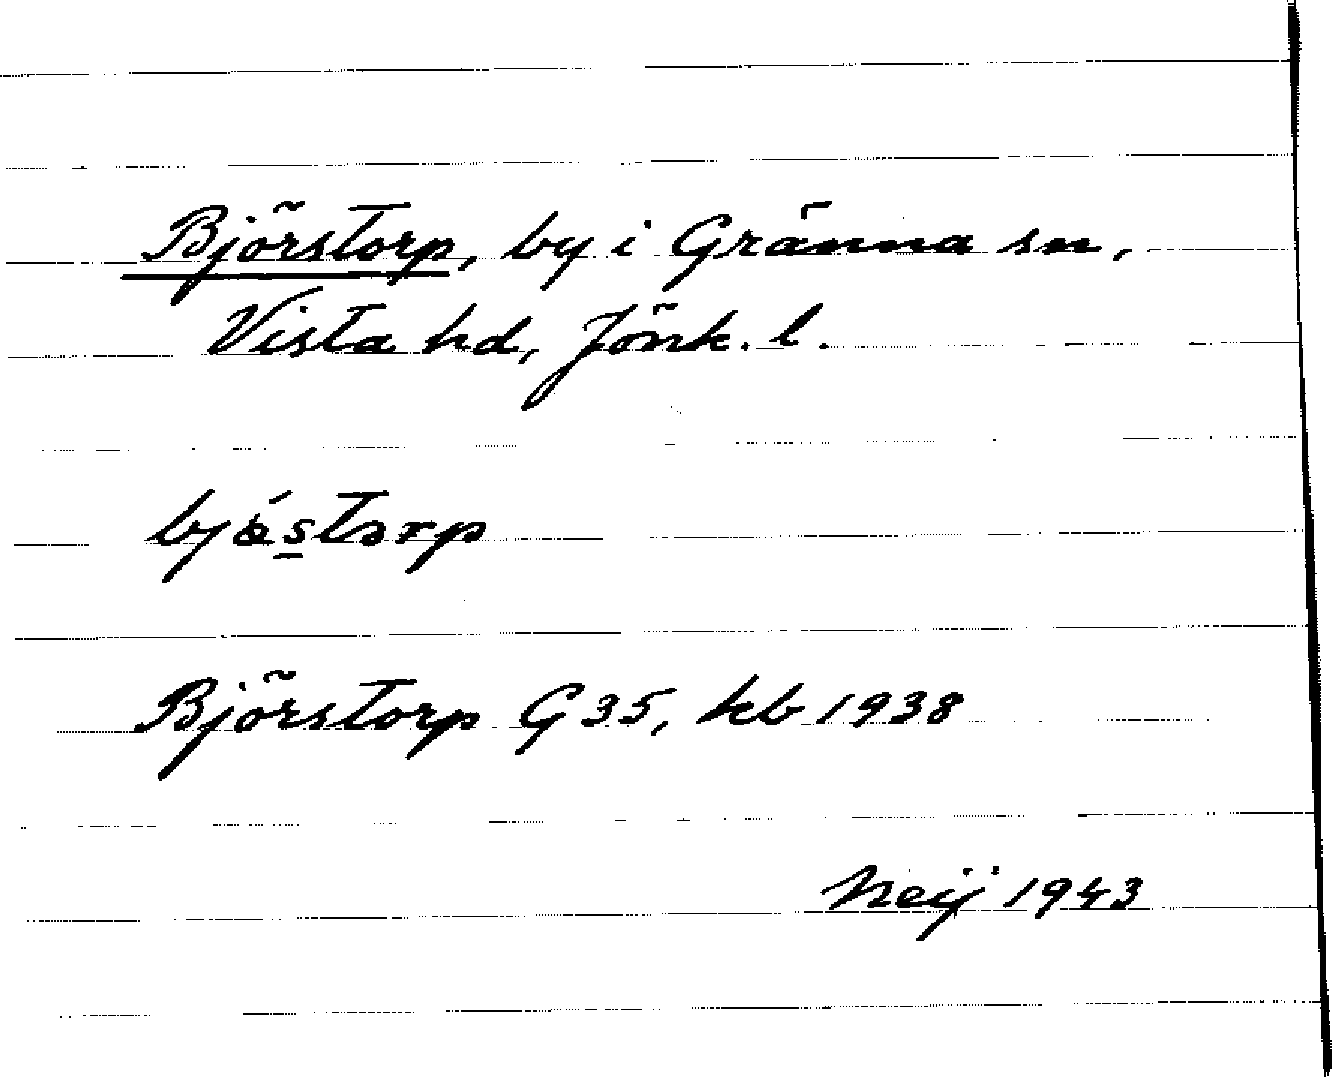 Björstorp, by i Gränna sn,
Vista hd, Jönk. l.
bjǻstorp
Björstorp G 35, kb 1938
Neij 1943